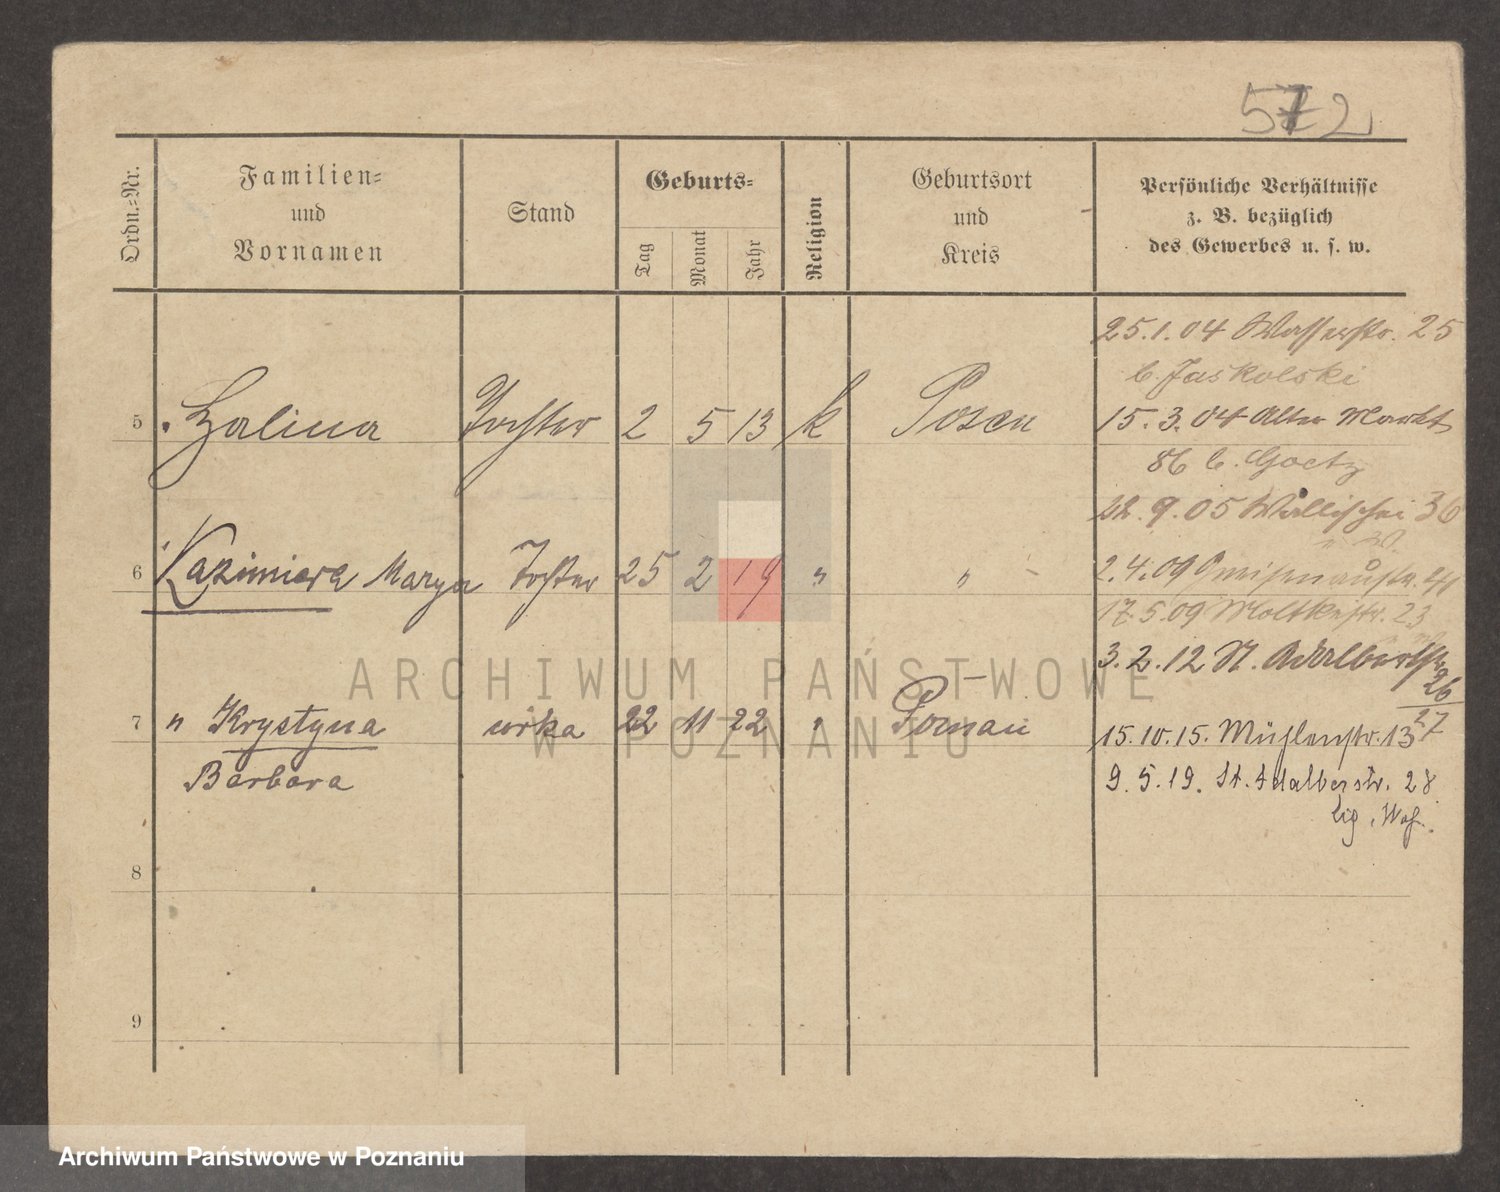 572
Ordn.=Nr.
Familien=
und
Vornamen
Stand
Geburts=
Tag
Monat
Jahr
Religion
Geburtsort
und
Kreis
Persönliche Verhältnisse
z. B. bezüglich
des Gewerbes u. s. w.
25.1.04 Wasserstr. 25
b. Jaskolski
5 Halina Tochter 2 5 13 k Posen
15.3.04 Alter Markt
86 b. Goetz
22.9.05 Wallischei 36
6 Kazimiera Marya Tochter 25 2 19 " "
2.4.09 Gneisenaustr.
17.5.09 Moltkestr. 23
3.2.12 St. Adalbertstr.
26
27
7 " Krystyna córka 22 11 22 " Poznań
15.10.15. Mühlenstr. 13
Barbara
9.5.19. St. Adalberstr. 28
8
9
ARCHIWUM PAŃSTWOWE
W POZNANIU
Archiwum Państwowe w Poznaniu